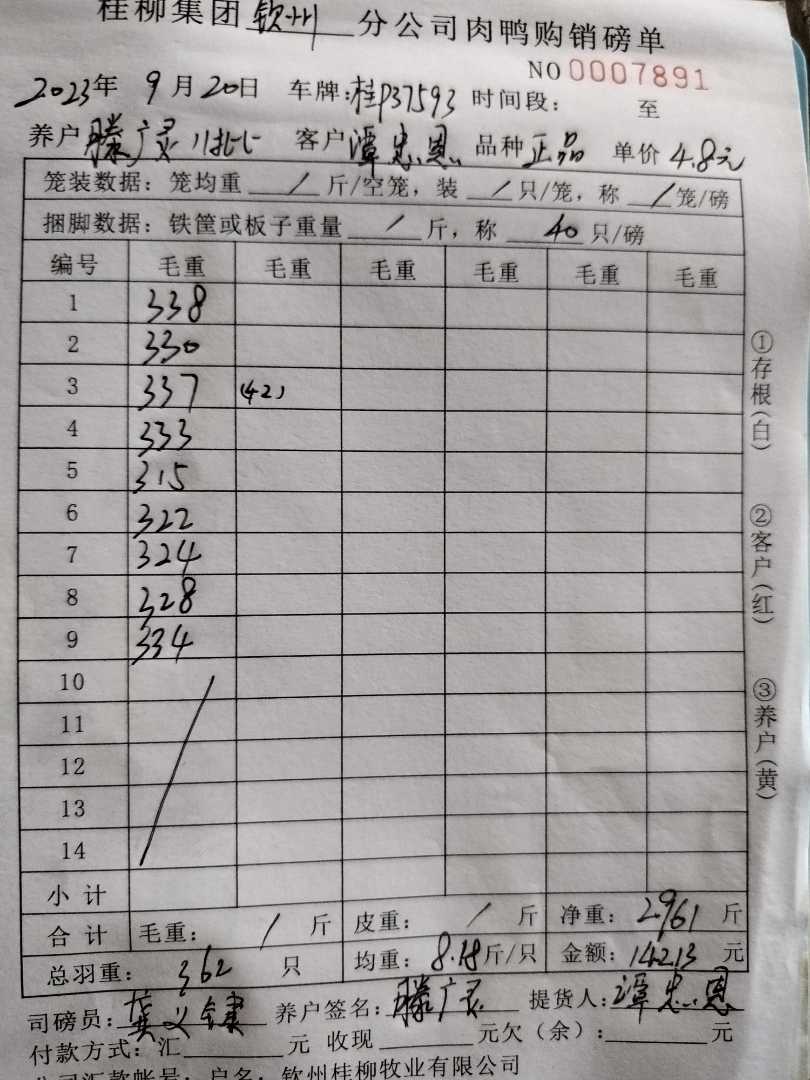 桂柳集团钦州分公司肉鸭购销磅单
NO 0007891
2023年 9月20日 车牌:桂P37593 时间段: 至
养户 滕广灵 客户 谭忠恩 品种 正品 单价 4.8元
笼装数据: 笼均重 / 斤/空笼, 装 / 只/笼, 称 / 笼/磅
捆脚数据: 铁筐或板子重量 / 斤, 称 40 只/磅
编号 毛重 毛重 毛重 毛重 毛重 毛重
1 338
2 330
3 337 (42)
4 333
5 315
6 322
7 324
8 328
9 334
10
11
12
13
14
小计
合计 毛重: / 斤 皮重: / 斤 净重: 2961 斤
总羽重: 362 只 均重: 8.18斤/只 金额: 14213 元
司磅员: 养户签名: 滕广灵 提货人: 谭忠恩
付款方式: 汇 元 收现 元欠(余): 元
公司汇款帐号: 户名: 钦州桂柳牧业有限公司
①存根(白)
②客户(红)
③养户(黄)